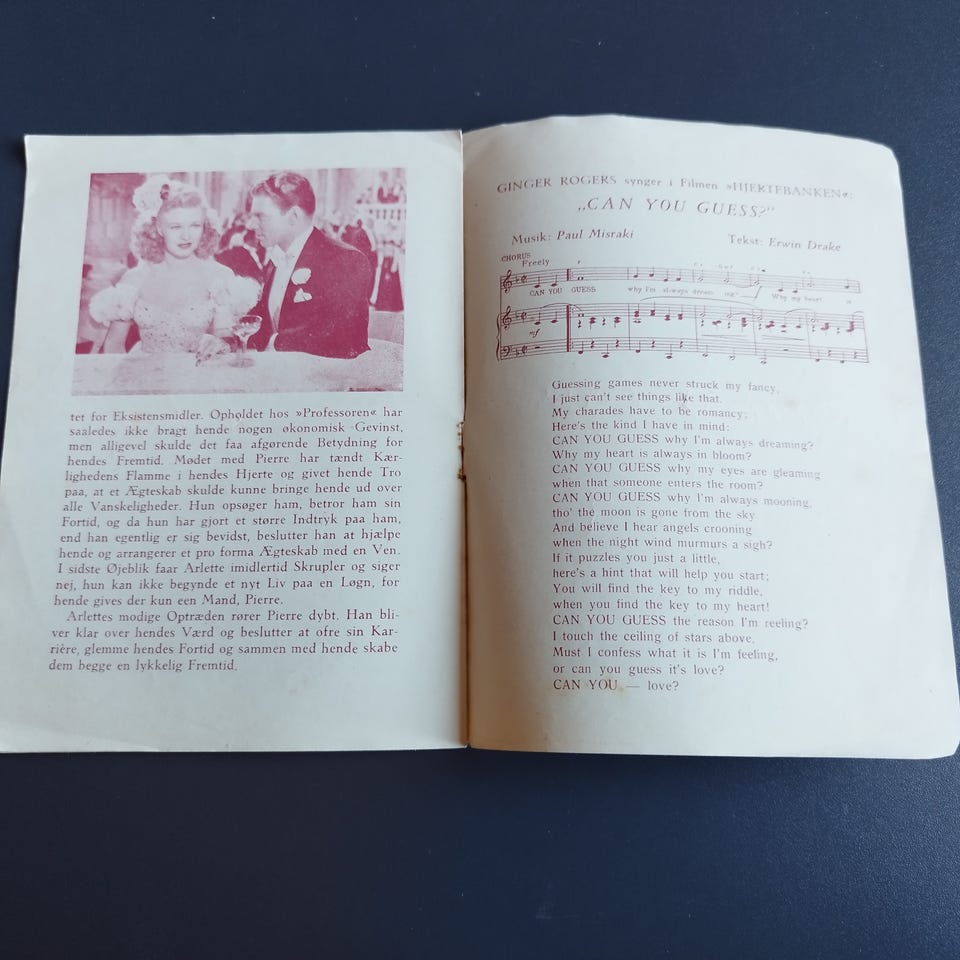 tet for Eksistensmidler. Opholdet hos »Professoren« har
saaledes ikke bragt hende nogen økonomisk Gevinst,
men alligevel skulde det faa afgørende Betydning for
hendes Fremtid. Mødet med Pierre har tændt Kær-
lighedens Flamme i hendes Hjerte og givet hende Tro
paa, at et Ægteskab skulde kunne bringe hende ud over
alle Vanskeligheder. Hun opsøger ham, betror ham sin
Fortid, og da hun har gjort et større Indtryk paa ham,
end han egentlig er sig bevidst, beslutter han at hjælpe
hende og arrangerer et pro forma Ægteskab med en Ven.
I sidste Øjeblik faar Arlette imidlertid Skrupler og siger
nej, hun kan ikke begynde et nyt Liv paa en Løgn, for
hende gives der kun een Mand, Pierre.
Arlettes modige Optræden rører Pierre dybt. Han bli-
ver klar over hendes Værd og beslutter at ofre sin Kar-
rière, glemme hendes Fortid og sammen med hende skabe
dem begge en lykkelig Fremtid.
GINGER ROGERS synger i Filmen »HJERTEBANKEN«:
„CAN YOU GUESS?"
Musik: Paul Misraki Tekst: Erwin Drake
CHORUS
Freely
CAN YOU GUESS why I'm always dream- ing? Why my heart is
mf
Guessing games never struck my fancy,
I just can't see things like that.
My charades have to be romancy;
Here's the kind I have in mind:
CAN YOU GUESS why I'm always dreaming?
Why my heart is always in bloom?
CAN YOU GUESS why my eyes are gleaming
when that someone enters the room?
CAN YOU GUESS why I'm always mooning,
tho' the moon is gone from the sky
And believe I hear angels crooning
when the night wind murmurs a sigh?
If it puzzles you just a little,
here's a hint that will help you start;
You will find the key to my riddle,
when you find the key to my heart!
CAN YOU GUESS the reason I'm reeling?
I touch the ceiling of stars above,
Must I confess what it is I'm feeling,
or can you guess it's love?
CAN YOU — love?